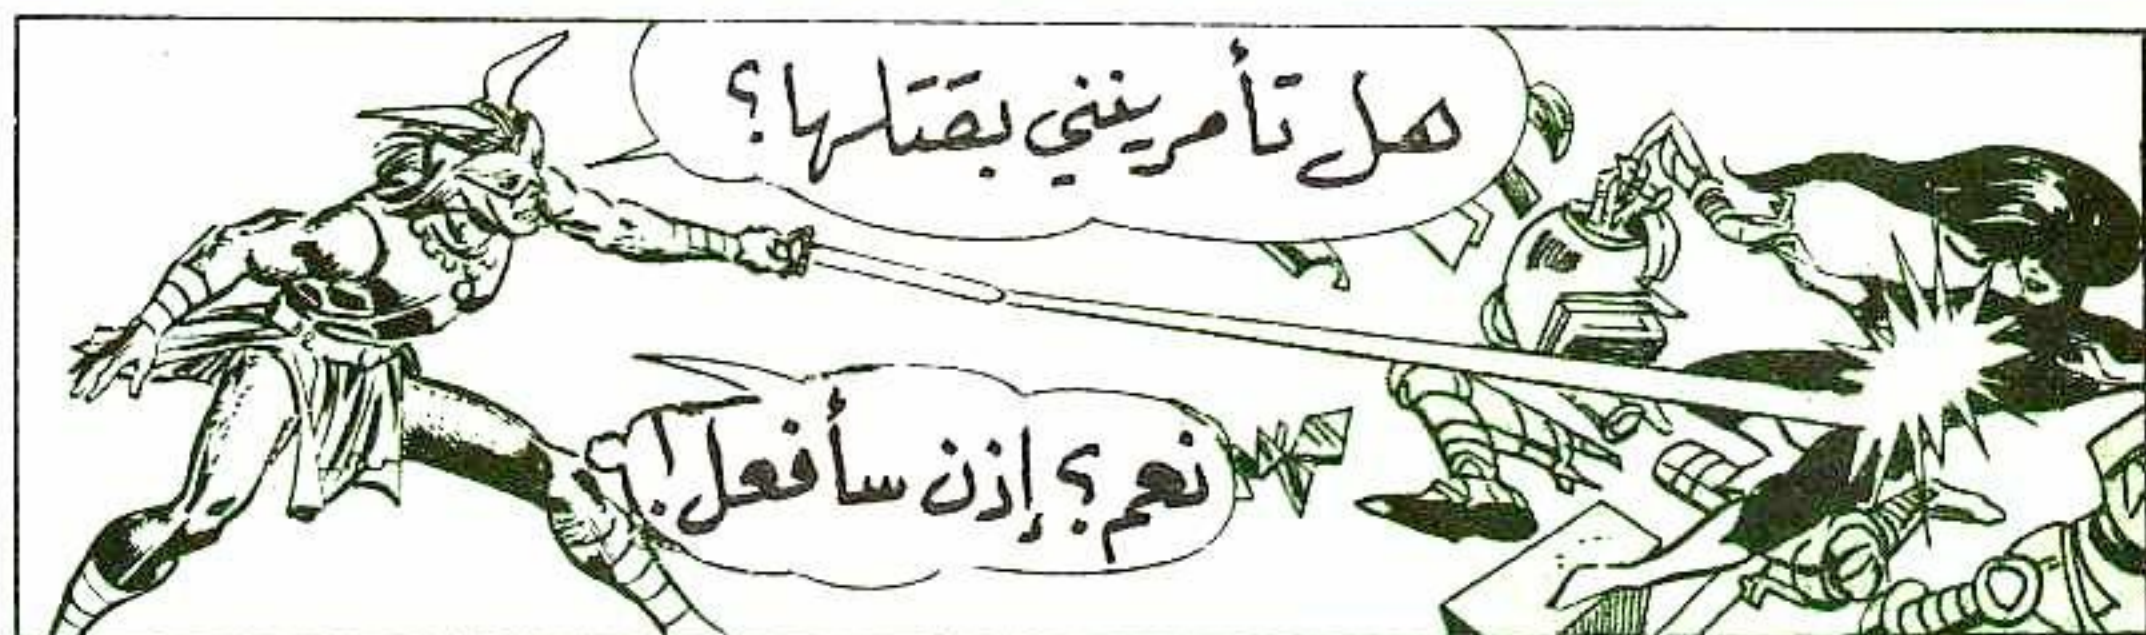 هل تأمرينني بقتلها؟
نعم؟ إذن سأفعل!